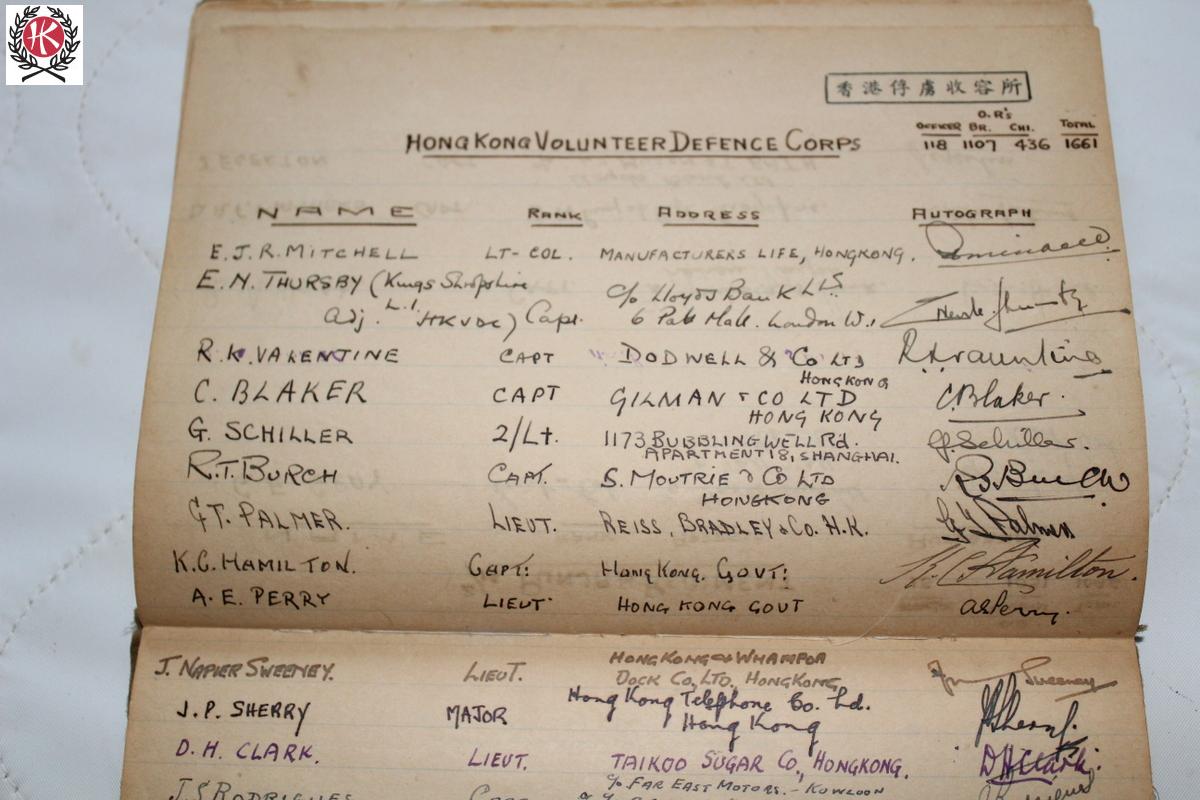 HK
香港俘虜收容所
O.R's
OFFICER BR. CHI. TOTAL
118 1107 436 1661
HONG KONG VOLUNTEER DEFENCE CORPS
NAME RANK ADDRESS AUTOGRAPH
E.J.R. MITCHELL LT-COL. MANUFACTURERS LIFE, HONGKONG.
E.N. THURSBY (Kings Shropshire c/o Lloyds Bank Ltd
L.I.
Adj. HKVDC) Capt. 6 Pall Mall. London W.1
R.K. VALENTINE CAPT DODWELL & Co LTD
HONGKONG
C. BLAKER CAPT GILMAN & CO LTD C. Blaker.
HONG KONG
G. SCHILLER 2/Lt. 1173 BUBBLING WELL Rd. G. Schiller.
APARTMENT 18, SHANGHAI.
R.T. BURCH CAPT. S. MOUTRIE & CO LTD
HONGKONG
G.T. PALMER. LIEUT. REISS, BRADLEY & Co. H.K. G.T. Palmer
K.C. HAMILTON. CAPT: HONG KONG. GOVT: K.C. Hamilton.
A.E. PERRY LIEUT. HONG KONG GOVT AEPerry.
J. NAPIER SWEENEY. LIEUT. HONGKONG & WHAMPOA
DOCK CO. LTD. HONGKONG Sweeney
J.P. SHERRY MAJOR Hong Kong Telephone Co. Ltd.
Hong Kong
D.H. CLARK. LIEUT. TAIKOO SUGAR CO., HONGKONG. DHClark.
c/o FAR EAST MOTORS. - KOWLOON
J.S. RODRIGUES CAPT